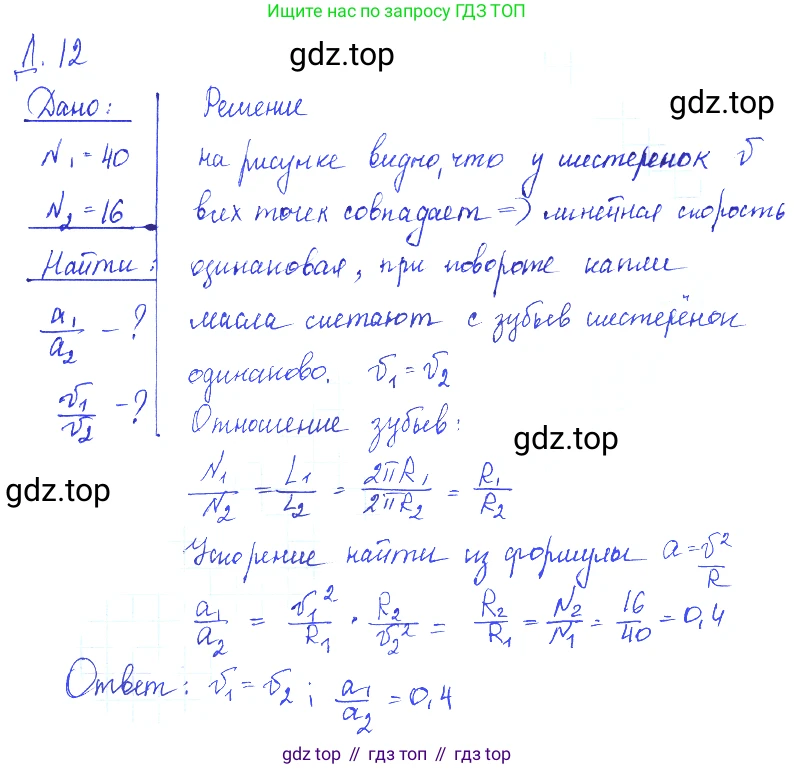 Ищите нас по запросу ГДЗ ТОП
Д. 12
gdz.top
Дано:
Решение
gdz.top
N₁ = 40
на рисунке видно, что у шестеренок v
N₂ = 16
всех точек совпадает => линейная скорость
Найти:
одинаковая, при повороте капли
a₁/a₂ - ?
масла слетают с зубьев шестерёнок
одинаково. v₁ = v₂
v₁/v₂ - ?
Отношение зубьев:
gdz.top
gdz.top
N₁/N₂ = L₁/L₂ = 2πR₁/2πR₂ = R₁/R₂
Ускорение найти из формулы a = v²/R
a₁/a₂ = v₁²/R₁ · R₂/v₂² = R₂/R₁ = N₂/N₁ = 16/40 = 0,4
Ответ: v₁ = v₂; a₁/a₂ = 0,4
gdz.top // гдз топ // gdz top